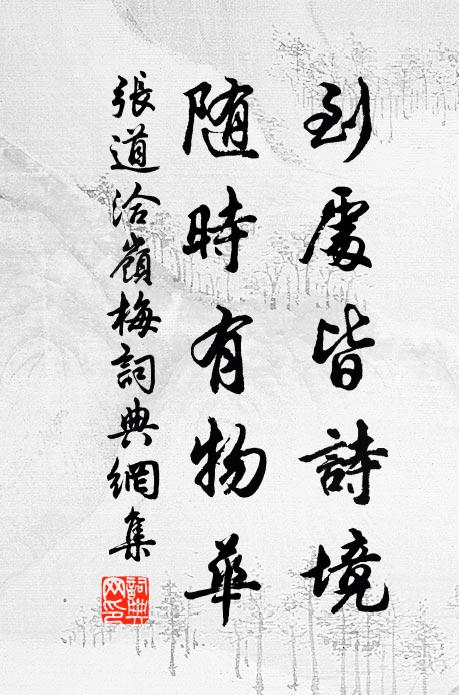 到處皆詩境
随時有物華
張道洽嶺梅詞典網集
詞典网印